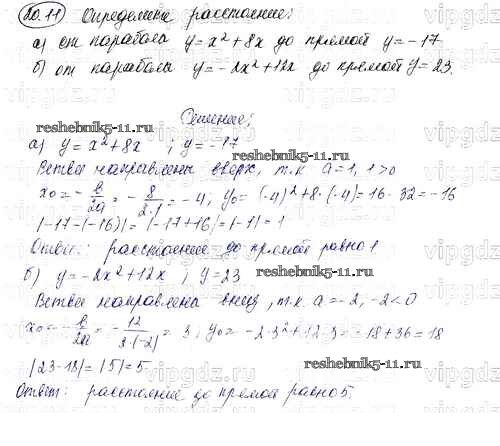 20.11 Определите расстояние:
а) от параболы y = x² + 8x до прямой y = -17
б) от параболы y = -2x² + 12x до прямой y = 23.
Решение:
reshebnik5-11.ru
reshebnik5-11.ru
а) y = x² + 8x ; y = -17
Ветви направлены вверх, т.к. a = 1, 1 > 0
x₀ = -b/2a = -8/2·1 = -4, y₀ = (-4)² + 8·(-4) = 16 - 32 = -16
|-17-(-16)| = |-17+16| = |-1| = 1
Ответ: расстояние до прямой равно 1
б) y = -2x² + 12x ; y = 23
reshebnik5-11.ru
Ветви направлены вниз, т.к. a = -2, -2 < 0
x₀ = -b/2a = -12/2·(-2) = 3, y₀ = -2·3² + 12·3 = -18 + 36 = 18
|23-18| = |5| = 5
reshebnik5-11.ru
Ответ: расстояние до прямой равно 5.